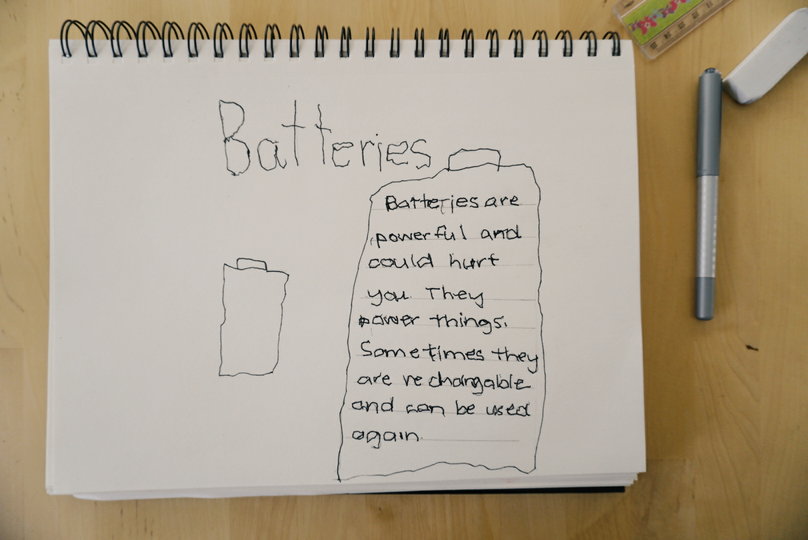 Batteries
Batteries are
powerful and
could hurt
you. They
power things.
Sometimes they
are rechargable
and can be used
again.